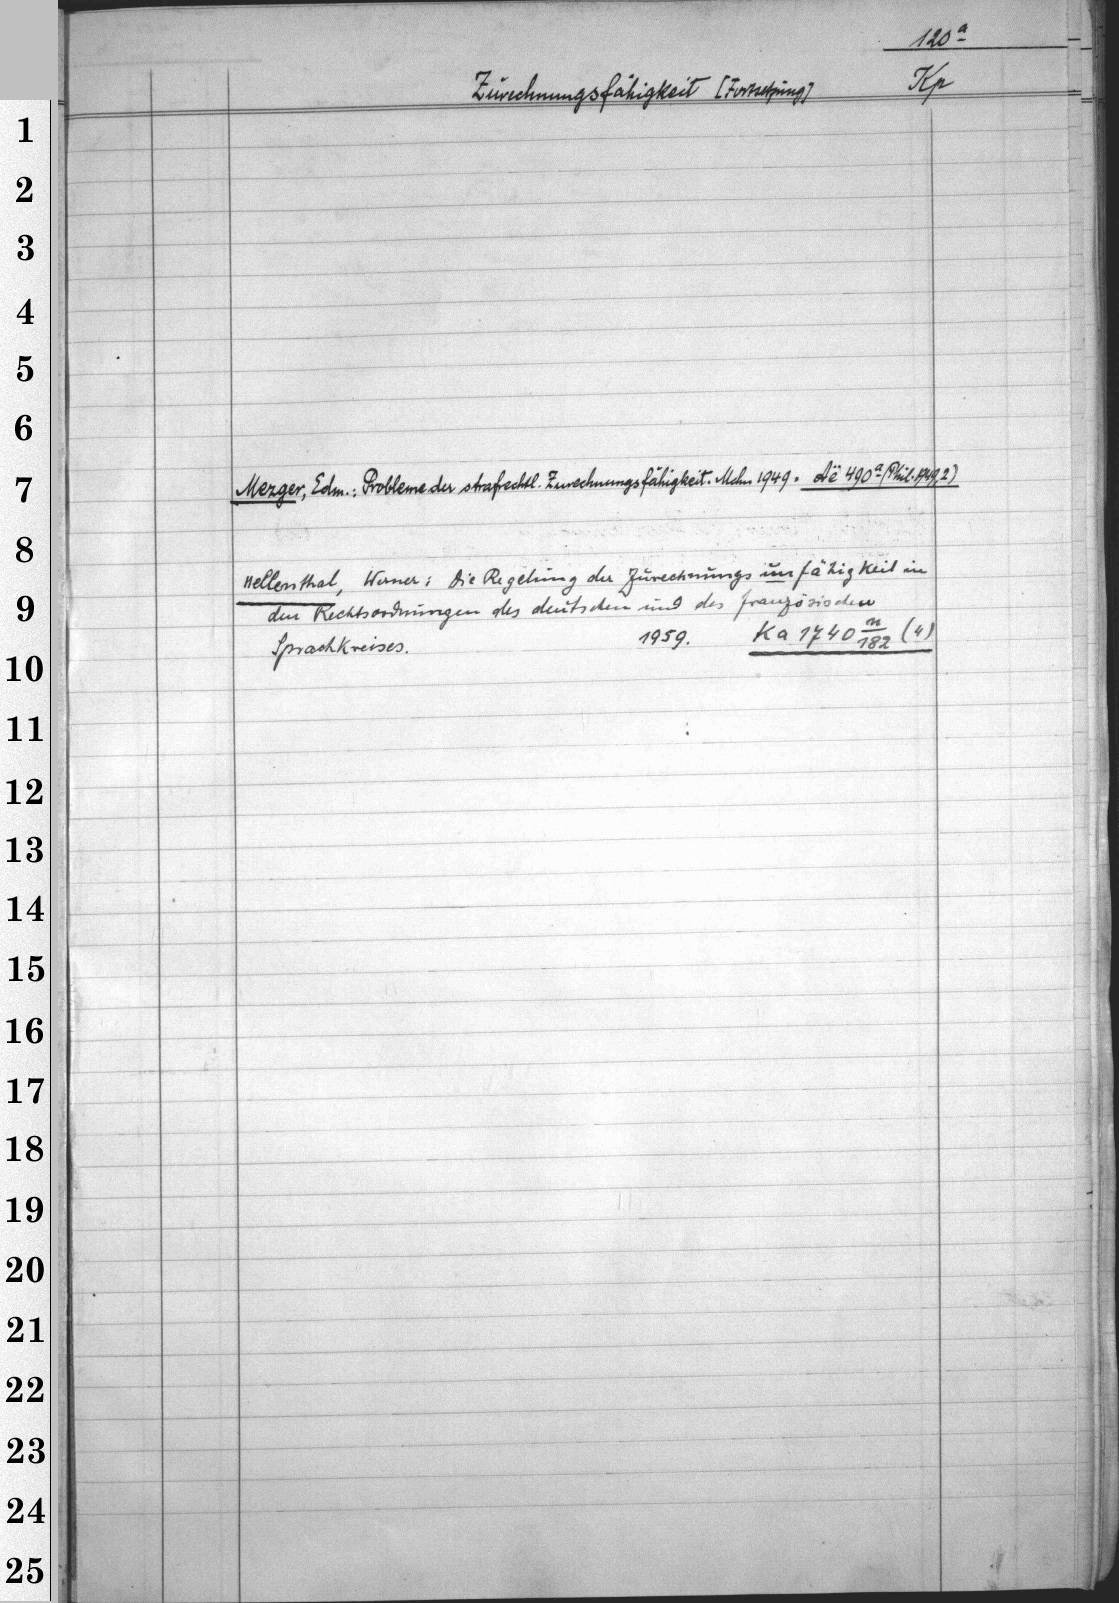 120a
Zurechnungsfähigkeit [Fortsetzung] Kp
1
2
3
4
5
6
7 Mezger, Edm.: Probleme der strafrechtl. Zurechnungsfähigkeit. Mchn 1949. Aë 490a (Phil. 1949,2)
8
Hellenthal, Werner: Die Regelung der Zurechnungsunfähigkeit in
9 den Rechtsordnungen des deutschen und des französischen
Sprachkreises. 1959. Ka 1740 n/182 (4)
10
11
12
13
14
15
16
17
18
19
20
21
22
23
24
25